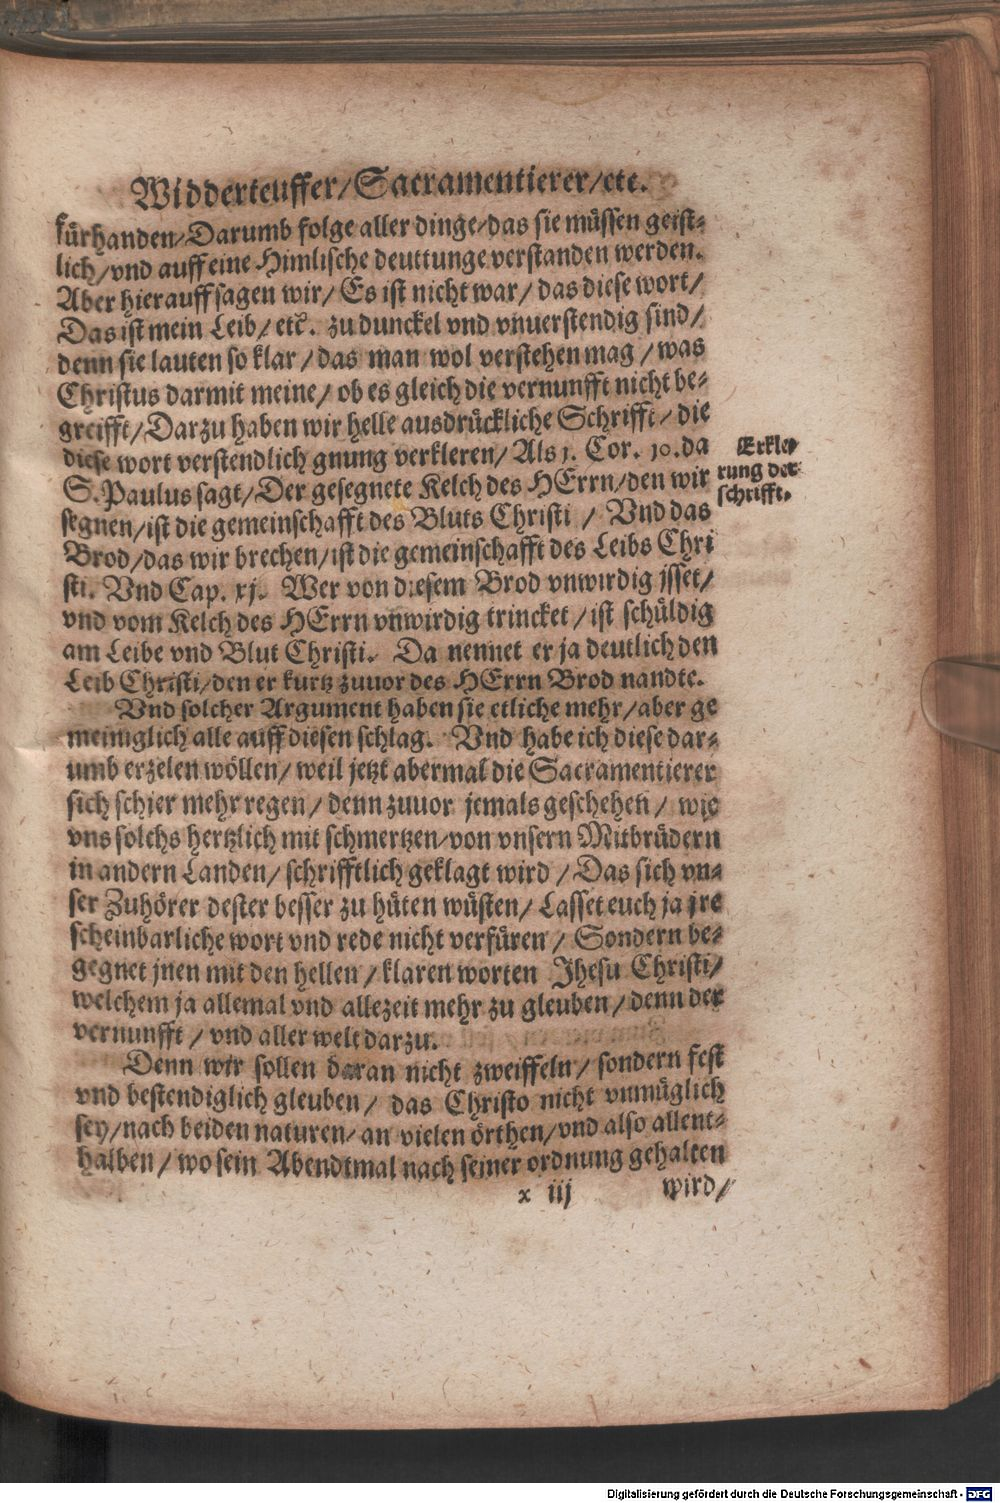 Widderteuffer/Sacramentierer/etc.
fürhanden/Darumb folge aller dinge/das sie müssen geist-
lich/vnd auff eine Himlische deuttunge verstanden werden.
Aber hierauff sagen wir/ Es ist nicht war/ das diese wort/
Das ist mein Leib/ etc. zu dunckel vnd vnuerstendig sind/
denn sie lauten so klar / das man wol verstehen mag / was
Christus darmit meine/ ob es gleich die vernunfft nicht be-
greifft/ Darzu haben wir helle ausdrückliche Schrifft / die
diese wort verstendlich gnung verkleren/ Als 1. Cor. 10. da
S. Paulus sagt/ Der gesegnete Kelch des HErrn/den wir
segnen/ist die gemeinschafft des Bluts Christi / Vnd das
Brod/das wir brechen/ist die gemeinschafft des Leibs Chri
sti. Vnd Cap. xj. Wer von diesem Brod vnwirdig jsset/
vnd vom Kelch des HErrn vnwirdig trincket / ist schüldig
am Leibe vnd Blut Christi. Da nennet er ja deutlich den
Leib Christi/den er kurtz zuuor des HErrn Brod nandte.
Erkle-
rung der
schrifft.
Vnd solcher Argument haben sie etliche mehr/aber ge
meiniglich alle auff diesen schlag. Vnd habe ich diese dar-
umb erzelen wöllen/ weil jetzt abermal die Sacramentierer
sich schier mehr regen / denn zuuor jemals geschehen / wie
vns solchs hertzlich mit schmertzen/von vnsern Mitbrüdern
in andern Landen/ schrifftlich geklagt wird / Das sich vn-
ser Zuhörer dester besser zu hüten wüsten/ Lasset euch ja jre
scheinbarliche wort vnd rede nicht verfüren / Sondern be-
gegnet jnen mit den hellen / klaren worten Jhesu Christi/
welchem ja allemal vnd allezeit mehr zu gleuben / denn der
vernunfft / vnd aller welt darzu.
Denn wir sollen daran nicht zweiffeln/ sondern fest
vnd bestendiglich gleuben / das Christo nicht vnmüglich
sey/nach beiden naturen/ an vielen örthen/vnd also allent-
halben / wo sein Abendtmal nach seiner ordnung gehalten
x iij wird/
Digitalisierung gefördert durch die Deutsche Forschungsgemeinschaft - DFG